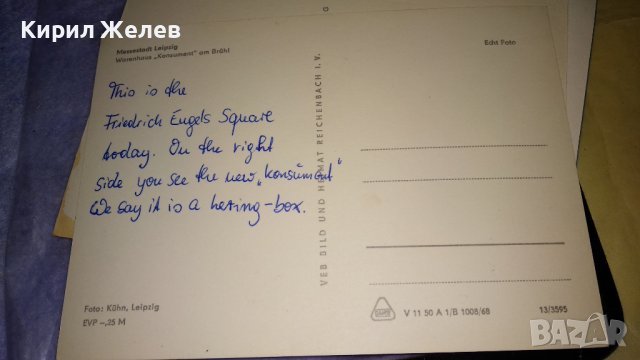 Кирил Желев
G
Messestadt Leipzig
Warenhaus „Konsument" am Brühl
Echt Foto
This is the
Friedrich Engels Square
today. On the right
side you see the new „Konsüment"
We say it is a hering-box.
VEB BILD UND HEIMAT REICHENBACH I. V.
Foto: Kühn, Leipzig
EVP –,25 M
V 11 50 A 1/B 1008/68
13/3595
BAZAR